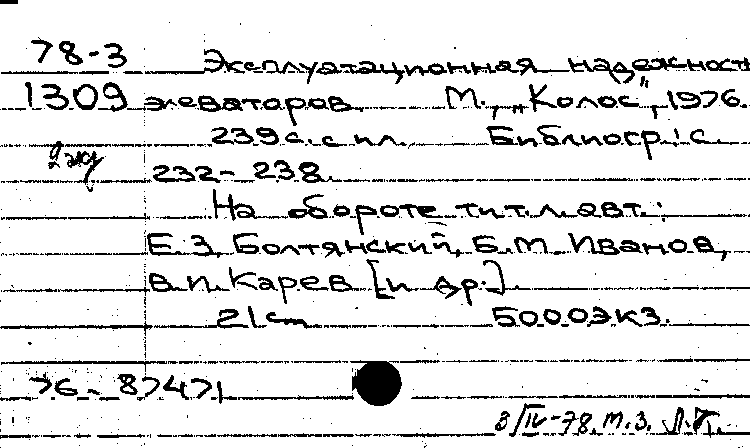 78-3 Эксплуатационная надежность
1309 элеваторов. М., „Колос", 1976.
239 с. с ил. Библиогр.: с.
2 экз 232-238.
На обороте тит. л. авт.:
Е.З. Болтянский, Б.М. Иванов,
В.П. Карев [и др.].
21 cm 5000 экз.
76-87471
3/IV-78. М.З.